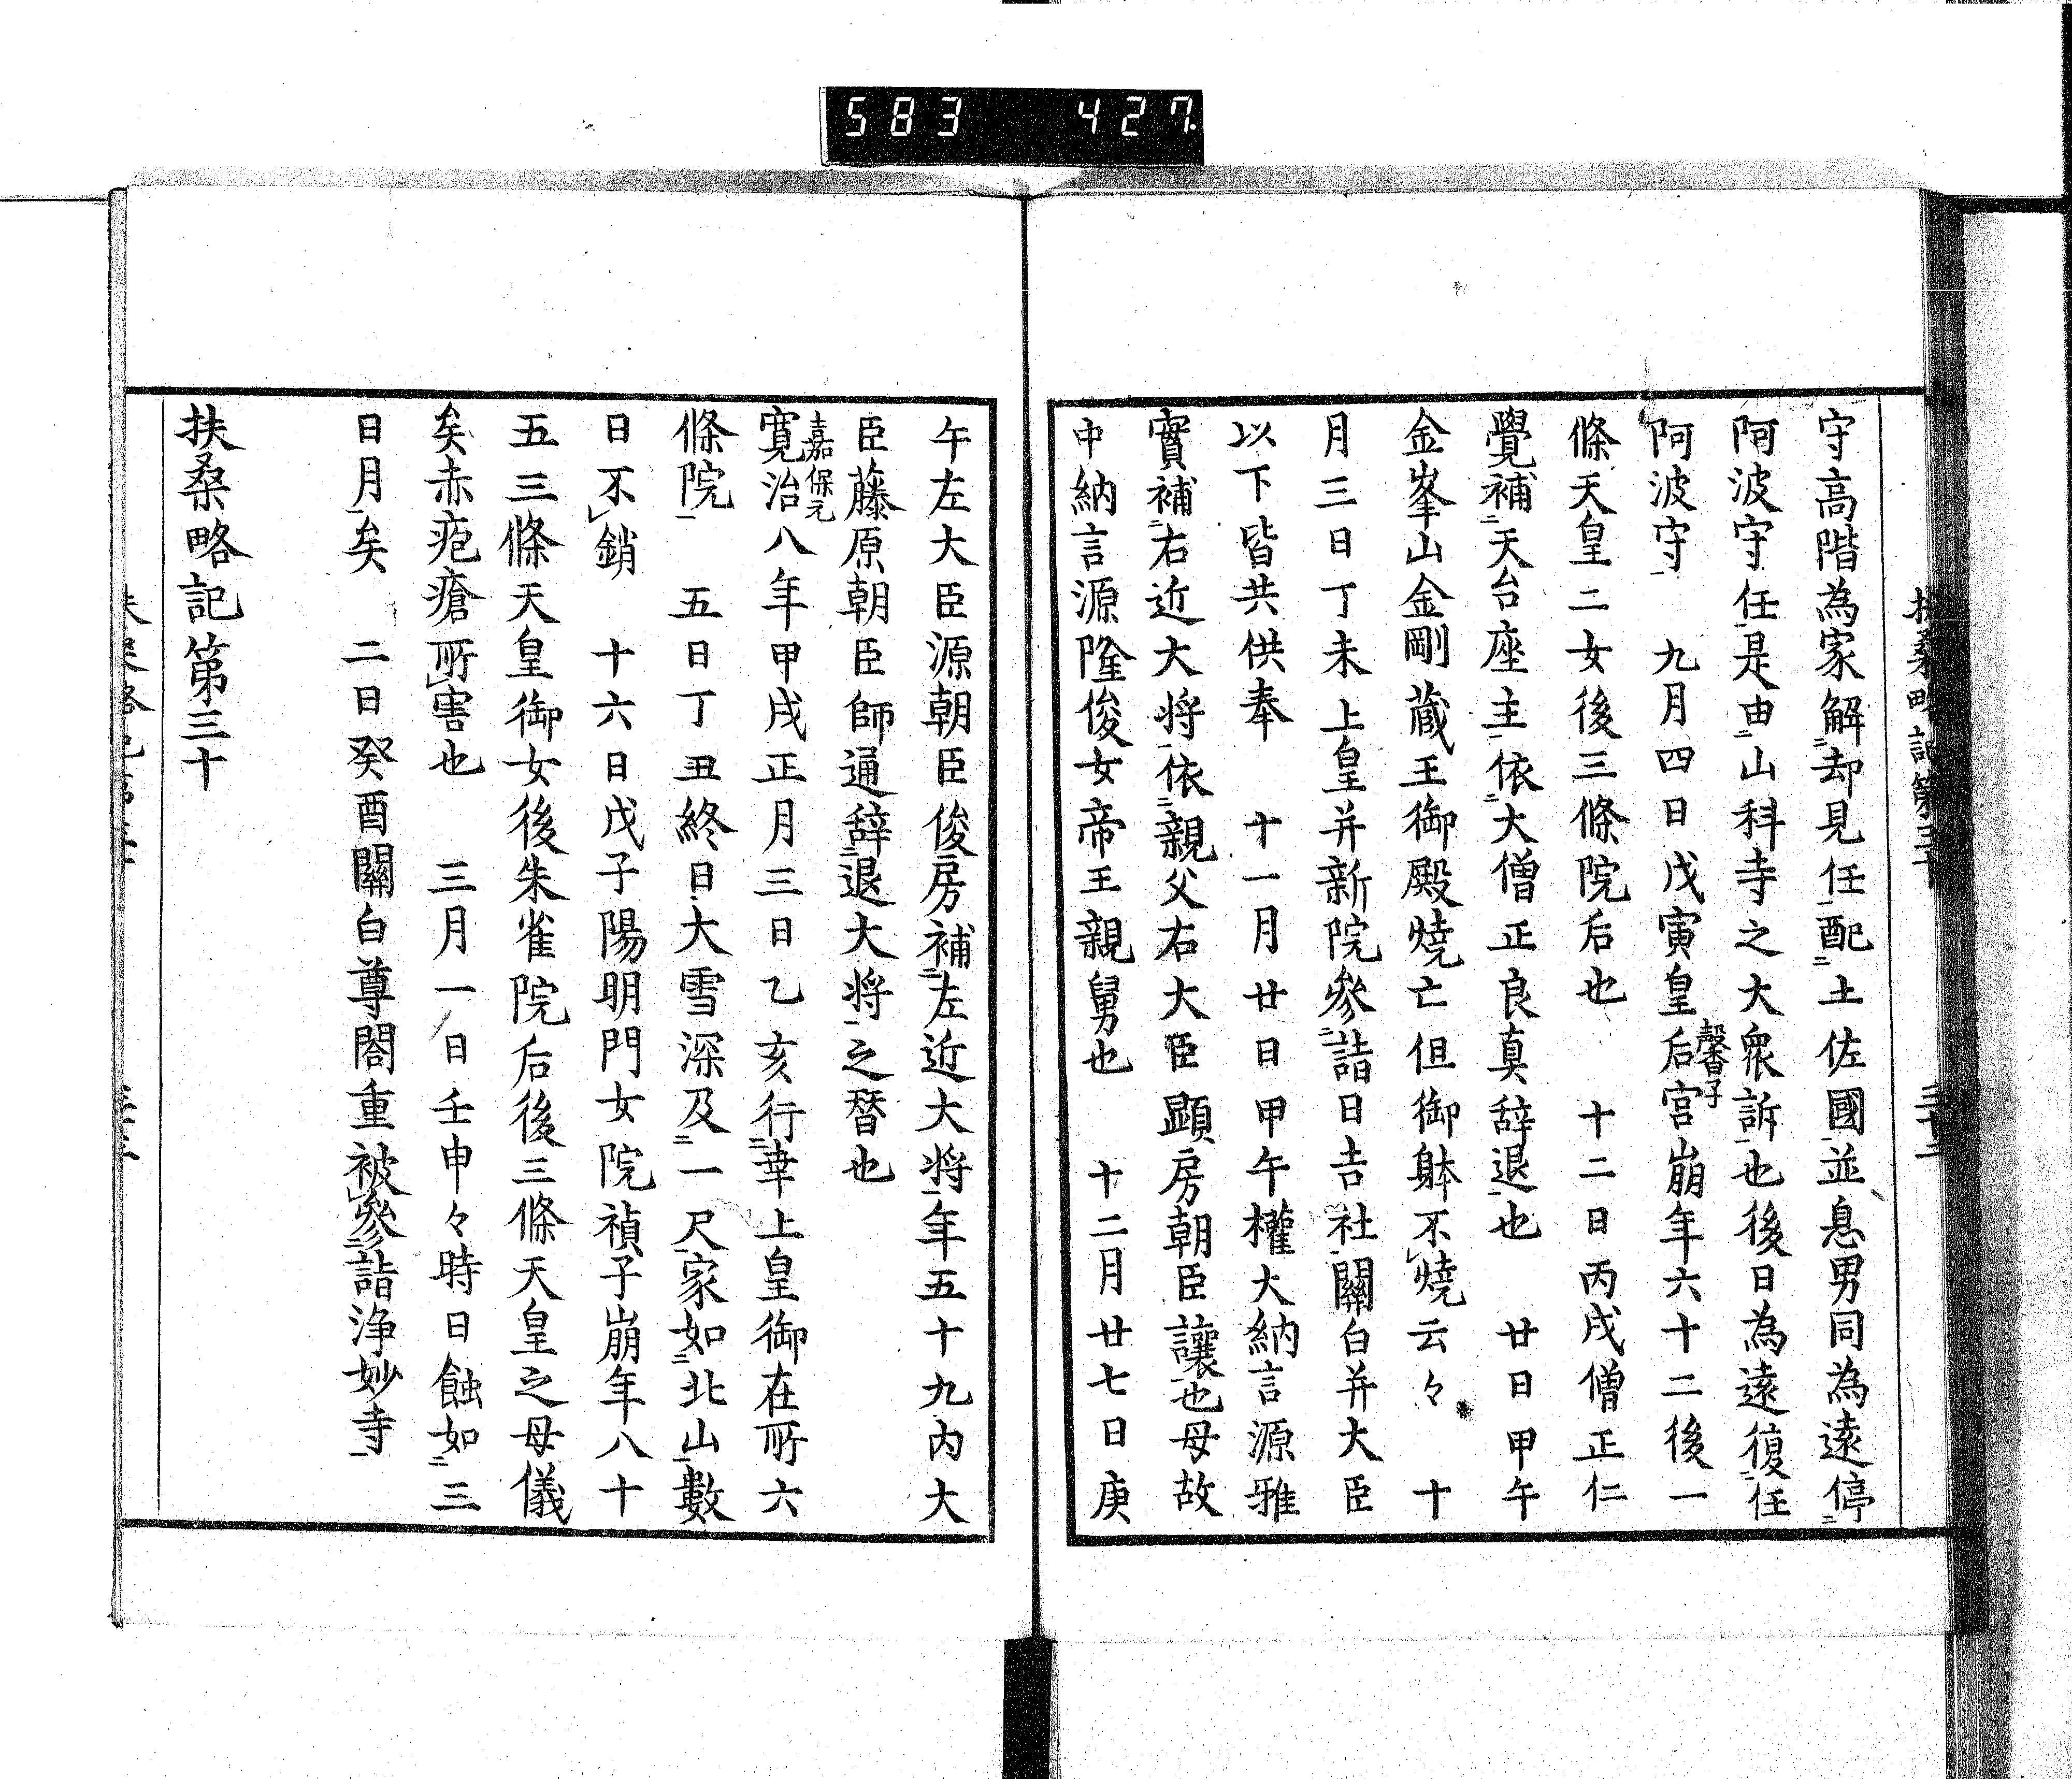 583 427
扶桑略記第三十
守高階為家解却見任配土佐國並息男同為遠停
阿波守任是由山科寺之大衆訴也後日為遠復任
阿波守 九月四日戊寅皇后宮崩年六十二後一
馨子
條天皇二女後三條院后也 十二日丙戌僧正仁
覺補天台座主依大僧正良真辞退也 廿日甲午
金峯山金剛蔵王御殿燒亡但御躰不燒云々 十
月三日丁未上皇并新院參詣日吉社關白并大臣
以下皆共供奉 十一月廿日甲午權大納言源雅
實補右近大将依親父右大臣顕房朝臣讓也母故
中納言源隆俊女帝王親舅也 十二月廿七日庚
午左大臣源朝臣俊房補左近大将年五十九内大
臣藤原朝臣師通辞退大将之替也
嘉保元
寛治八年甲戌正月三日乙亥行幸上皇御在所六
條院 五日丁丑終日大雪深及一尺家如北山數
日不銷 十六日戊子陽明門女院禎子崩年八十
五三條天皇御女後朱雀院后後三條天皇之母儀
矣赤疱瘡所害也 三月一日壬申々時日蝕如三
日月矣 二日癸酉關白尊閤重被參詣浄妙寺
扶桑略記第三十